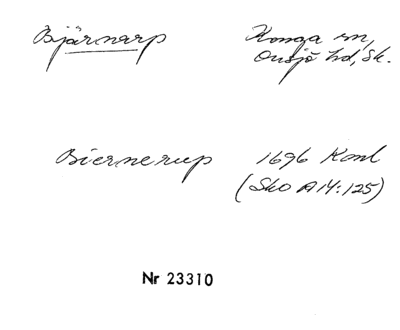 Bjärnarp Konga sn,
Onsjö hd, Sk.
Biernerup 1696 Konl
(Sko A14:125)
Nr 23310